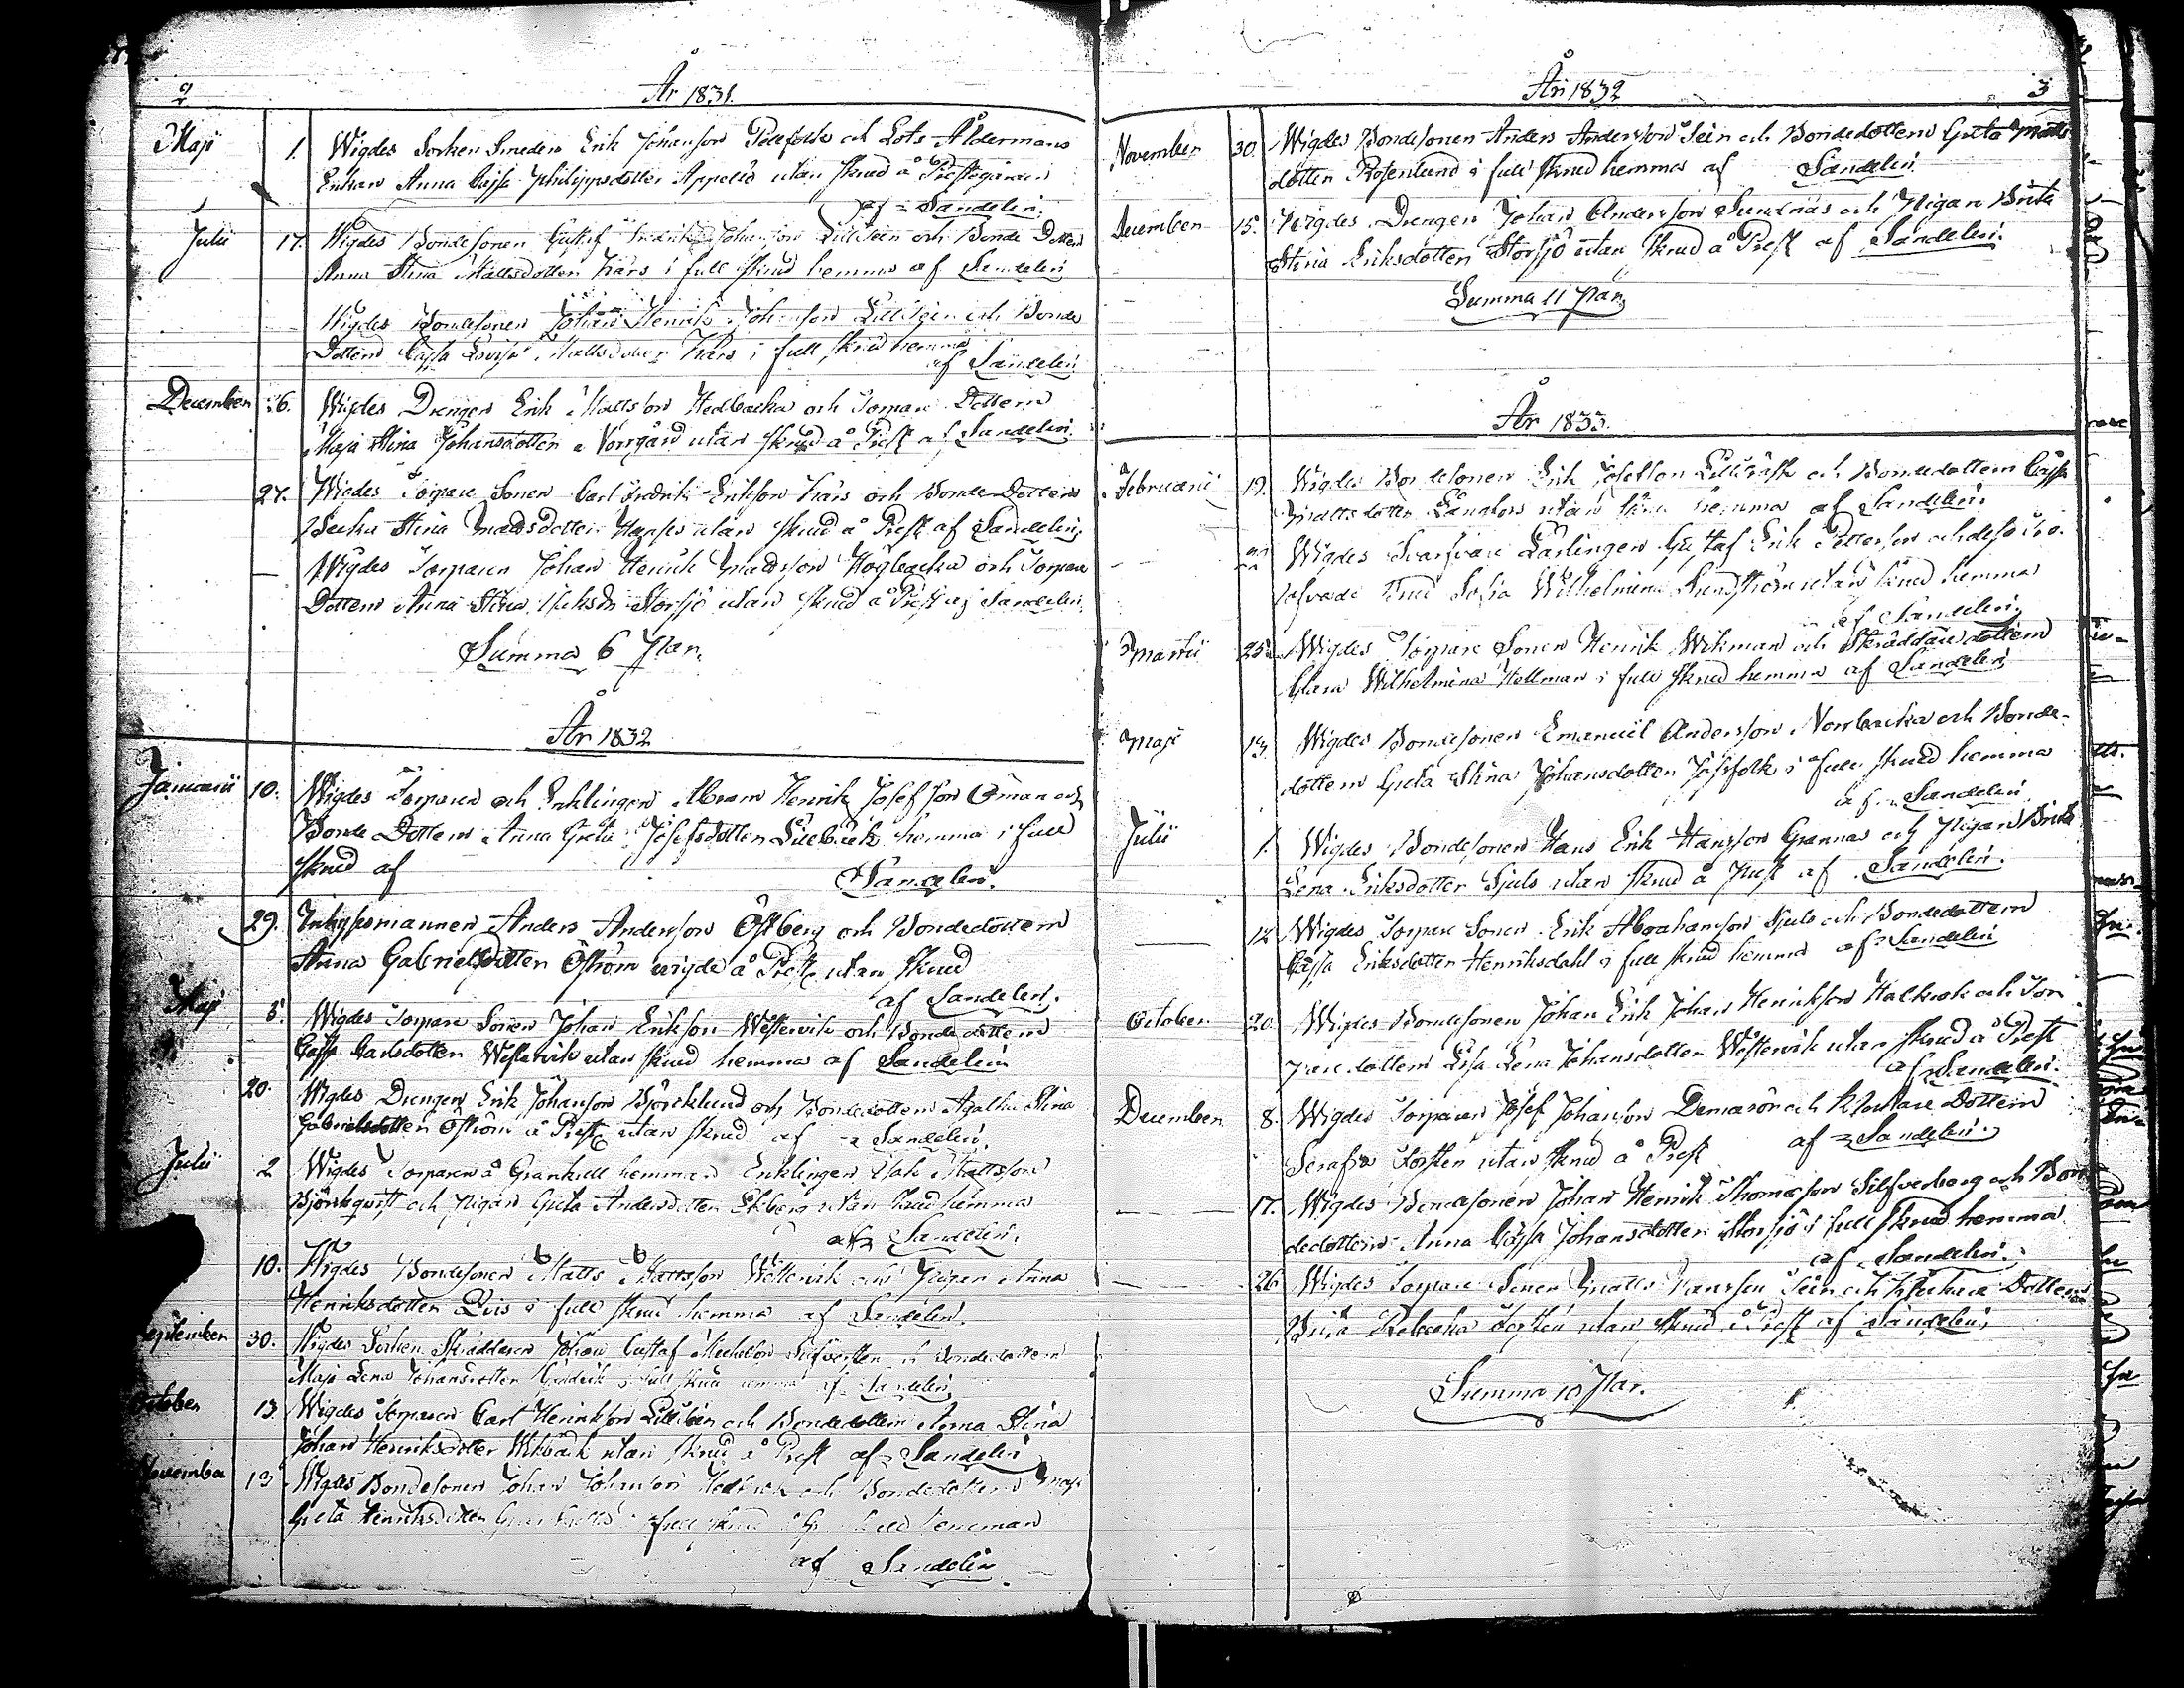 2 År 1831.
Maji 1. Wigdes Socken Smeden Erik Johansson Pellfolk och Lots Åldermans
Enkan Anna Cajsa Philippsdotter Appelö utan skrud å Prestegården
af Sandelin.
Julii 17. Wigdes Bondesonen Gustaf Fredrik Johansson Lillsien och Bonde Dottern
Anna Stina Mattsdotter Kårs i full skrud hemma af Sandelin
Wigdes Bondesonen Johan Henrik Johansson Lillsjen och Bonde
Dottern Cajsa Lovisa Mattsdotter Kårs i full skrud hemma
af Sandelin
December 26. Wigdes Drengen Erik Mattsson Hedbacka och Torpare Dottern
Maja Stina Johansdotter Norrgård utan skrud å Prest af Sandelin
27. Wigdes Torpare Sonen Carl Fredrik Eriksson Kårs och Bonde Dottern
Stina Mattsdotter utan skrud å Prest af Sandelin
Wigdes Torparen Johan Henrik Mattsson Högbacka och Torpare
Dottern Anna Stina Storsjö utan skrud å Prest af Sandelin
Summa 6 Par.
År 1832
Januarii 10. Wigdes Torparen och Enklingen Abram Henrik Josefsson Öman och
Bonde Dottern Anna Greta Josefsdotter Lillbäck hemma i full
skrud af Sandelin.
29. Inhysesmannen Anders Andersson Östberg och Bondedottern
Anna Gabrielsdotter Öström wigde å Prest utan skrud
af Sandelin.
Maji 8. Wigdes Torpare Sonen Johan Eriksson Westervik och Bonde dottern
Cajsa Carlsdotter Westervik utan skrud hemma af Sandelin
20. Wigdes Drengen Erik Johansson Björcklund och Bondedottern Agatha Stina
Gabrielsdotter Öström å Prest utan skrud af Sandelin.
Julii 2 Wigdes Torparen å Grankull hemman Enklingen Isak Mattsson
Björkqvist och Pigan Greta Andersdotter Ekberg utan skrud hemma
af Sandelin.
10. Wigdes Bondesonen Matts Mattsson Westervik och Pigan Anna
Henriksdotter i full skrud hemma af Sandelin.
September 30. Wigdes Socken Skräddaren Johan Gustaf Michelsson Silfversten och Bondedottern
Maja Lena Johansdotter i full skrud hemma af Sandelin
October 13. Wigdes Torparen Carl Henriksson Lillsien och Bondedottern Anna Stina
Johan Henriksdotter Wikbäck utan skrud å Prest af Sandelin
November 13 Wigdes Bondesonen Johan Johansson och Bondedottern Maja
Greta Henriksdotter i full skrud
af Sandelin
År 1832 3
November 30. Wigdes Bondesonen Anders Andersson Sein och Bondedottern Greta Matts
dotter Rosenlund i full skrud hemma af Sandelin.
December 15. Wigdes Drengen Johan Andersson Sundnäs och Pigan Brita
Stina Eriksdotter Storsjö utan skrud å Prest af Sandelin.
Summa 11 Par.
År 1833.
Februarii 19. Wigdes Bondesonen Erik Josefsson Lillträsk och Bondedottern Cajsa
Mattsdotter Långfors utan skrud hemma af Sandelin.
22 Wigdes Svarfvare Lärlingen Gustaf Erik Pettersson och dess tro-
lofvade Brud Sofia Wilhelmina Lundström utan skrud hemma
af Sandelin.
Martii 25. Wigdes Torpare Sonen Henrik Wikman och Skräddaredottern
Clara Wilhelmina Hallman i full skrud hemma af Sandelin
Maji 13. Wigdes Bondesonen Emanuel Andersson Norrbacka och Bonde-
dottern Greta Stina Johansdotter Jåfsfolk i full skrud hemma
af Sandelin
Julii 1. Wigdes Bondesonen Hans Erik Hansson Grannas och Pigan Brita
Lena Eriksdotter Sjuls utan skrud å Prest af Sandelin.
12 Wigdes Torpare Sonen Erik Abrahamsson Sjuls och Bondedottern
Cajsa Eriksdotter Henriksdahl i full skrud hemma af Sandelin
October 20. Wigdes Bondesonen Johan Erik Johan Henriksson Kalkvok och Tor
paredottern Lisa Lena Johansdotter Westervik utan skrud å Prest
af Sandelin.
December 8. Wigdes Torparen Josef Johansson Demasön och Klockare Dottern
Serafia Forstén utan skrud å Prest af Sandelin.
17. Wigdes Bondesonen Johan Henrik Thomasson Silfverberg och Bon
dedottern Anna Cajsa Johansdotter Storsjö i full skrud hemma
af Sandelin.
26 Wigdes Torpare Sonen Matts Hansson Sein och Klockare Dottern
Brita Rebecka Forstén utan skrud å Prest af Sandelin.
Summa 10 Par.